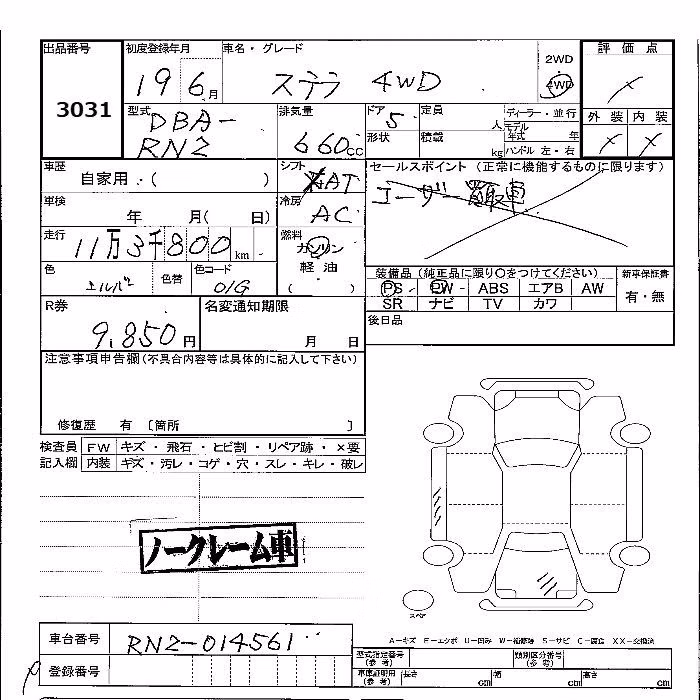 出品番号 初度登録年月 車名・グレード 2WD 評価点
3031 19 6月 ステラ 4WD 4WD
外装 内装
型式 DBA- 排気量 ドア 5 定員 人 ディーラー・並行
モデル
RN2 660cc 形状 積載 kg 年式 年
ハンドル 左・右
車歴 シフト AT セールスポイント (正常に機能するものに限ります)
自家用・( )
車検 年 月( 日) 冷房 AC
走行 11万3千800km 燃料 ガソリン
軽油
( )
色 シルバー 色替 色コード 01G
装備品 (純正品に限り○をつけてください) 新車保証書
PS PW ABS エアB AW 有・無
SR ナビ TV カワ
R券 名変通知期限 後日品
9,850円 月 日
注意事項申告欄(不具合内容等は具体的に記入して下さい)
修復歴 有 〔箇所 〕
検査員 FW キズ・飛石・ヒビ割・リペア跡・×要
記入欄 内装 キズ・汚レ・コゲ・穴・スレ・キレ・破レ
ノークレーム車
スペア
A-キズ E-エクボ U-凹み W-補修跡 S-サビ C-腐食 XX-交換済
車台番号 RN2-014561
登録番号
型式指定番号(参考) 類別区分番号(参考)
車庫証明用(参考) 長さ cm 幅 cm 高さ cm